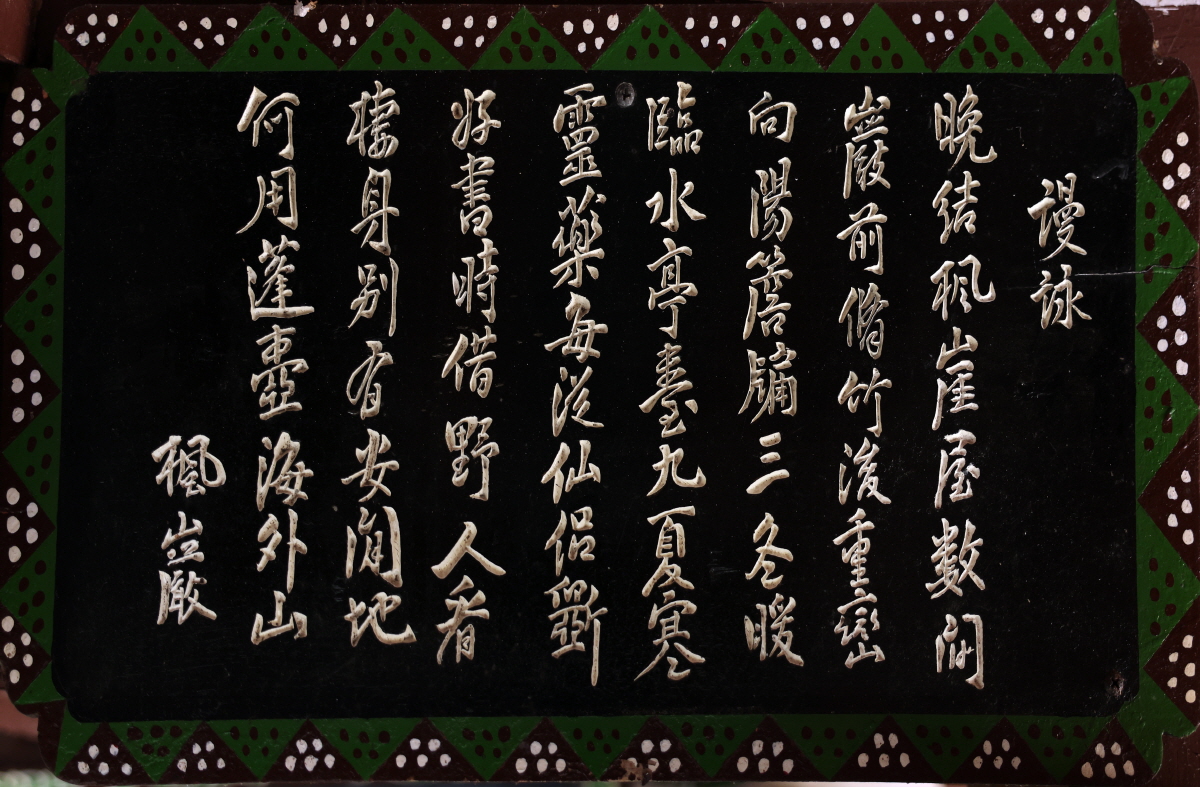 謾詠
晚結楓崖屋數間
巖前脩竹後重巒
向陽簷牖三冬暖
臨水亭臺九夏寒
靈藥每從仙侶斲
好書時借野人看
棲身別有安閒地
何用蓬壺海外山
楓巖